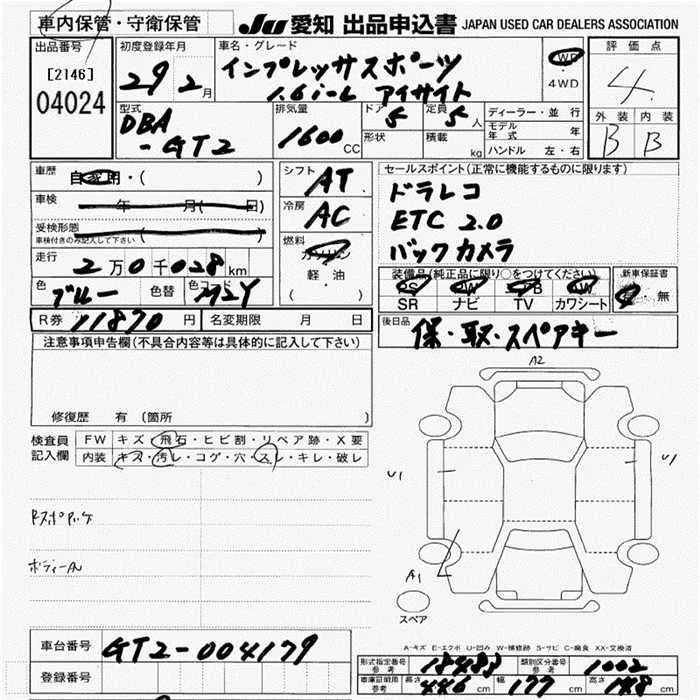 車内保管・守衛保管 JU 愛知 出品申込書 JAPAN USED CAR DEALERS ASSOCIATION
出品番号 初度登録年月 車名・グレード 評価点
[2146] 29 2月 インプレッサスポーツ 4WD 4
04024 1.6i-L アイサイト
型式 排気量 ドア 定員 ディーラー・並行 外装 内装
DBA 1600CC 5 5人 モデル年式 年 B B
-GT2 形状 積載 kg ハンドル 左・右
車歴 自家用・( ) シフト AT セールスポイント(正常に機能するものに限ります)
車検 年 月( 日) 冷房 AC ドラレコ
受検形態 ETC 2.0
車検付きのみ記入して下さい 燃料 ガソリン バックカメラ
走行 2万0千028km 軽・油
色 ブルー 色替 色コード M2Y ( ) 装備品(純正品に限り○をつけてください) 新車保証書
PS PW AB AW
SR ナビ TV カワシート 有・無
R券 11870円 名変期限 月 日 後日品 保・取・スペアキー
注意事項申告欄(不具合内容等は具体的に記入して下さい)
修復歴 有 (箇所
A2
検査員 FW キズ・飛石・ヒビ割・リペア跡・X要
記入欄 内装 キズ・汚レ・コゲ・穴・スレ・キレ・破レ
U1 U1
A1
スペア
A-キズ E-エクボ U-凹み W-補修跡 S-サビ C-腐食 XX-交換済
車台番号 GT2-004179
形式指定番号 参考 18483 類別区分番号 参考 1002
登録番号 車庫証明用 参考 長さ 446cm 幅 177cm 高さ 148cm